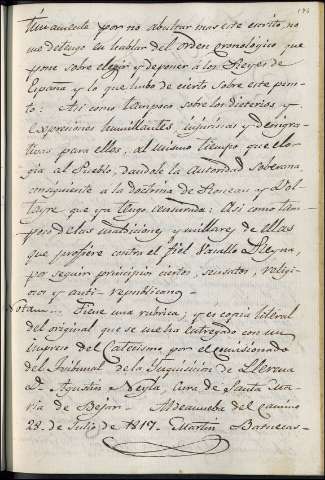 timamente por no abultar mas este escrito, no
me detengo en hablar del orden cronológico que
pone sobre elegir y deponer á los Reyes de
España y lo que hubo de cierto sobre este pun-
to: Asi como tampoco sobre los dicterios, y
expresiones humillantes, injuriosas y denigra-
tivas para ellos, al mismo tiempo que elo-
gia al Pueblo, dandole la Autoridad soberana
consiguiente a la doctrina de Roseau y Vol-
tayre que ya tengo censurada: Asi como tam-
poco de las maldiciones y millares de ellas
que profiere contra el fiel Vasallo Reyna,
por seguir principios ciertos, sensatos, religi-
osos y anti-republicanos -
Nota Tiene una rubrica, y es copia literal
del original que se me ha entregado con un
impreso del Catecismo por el comisionado
del Tribunal de la Inquisicion de Llerena
Dn. Agustin Neyla, Cura de Santa Ma-
ria de Bejar. Aldeanueba del Camino
28 de Julio de 1817. Martin Batuecas